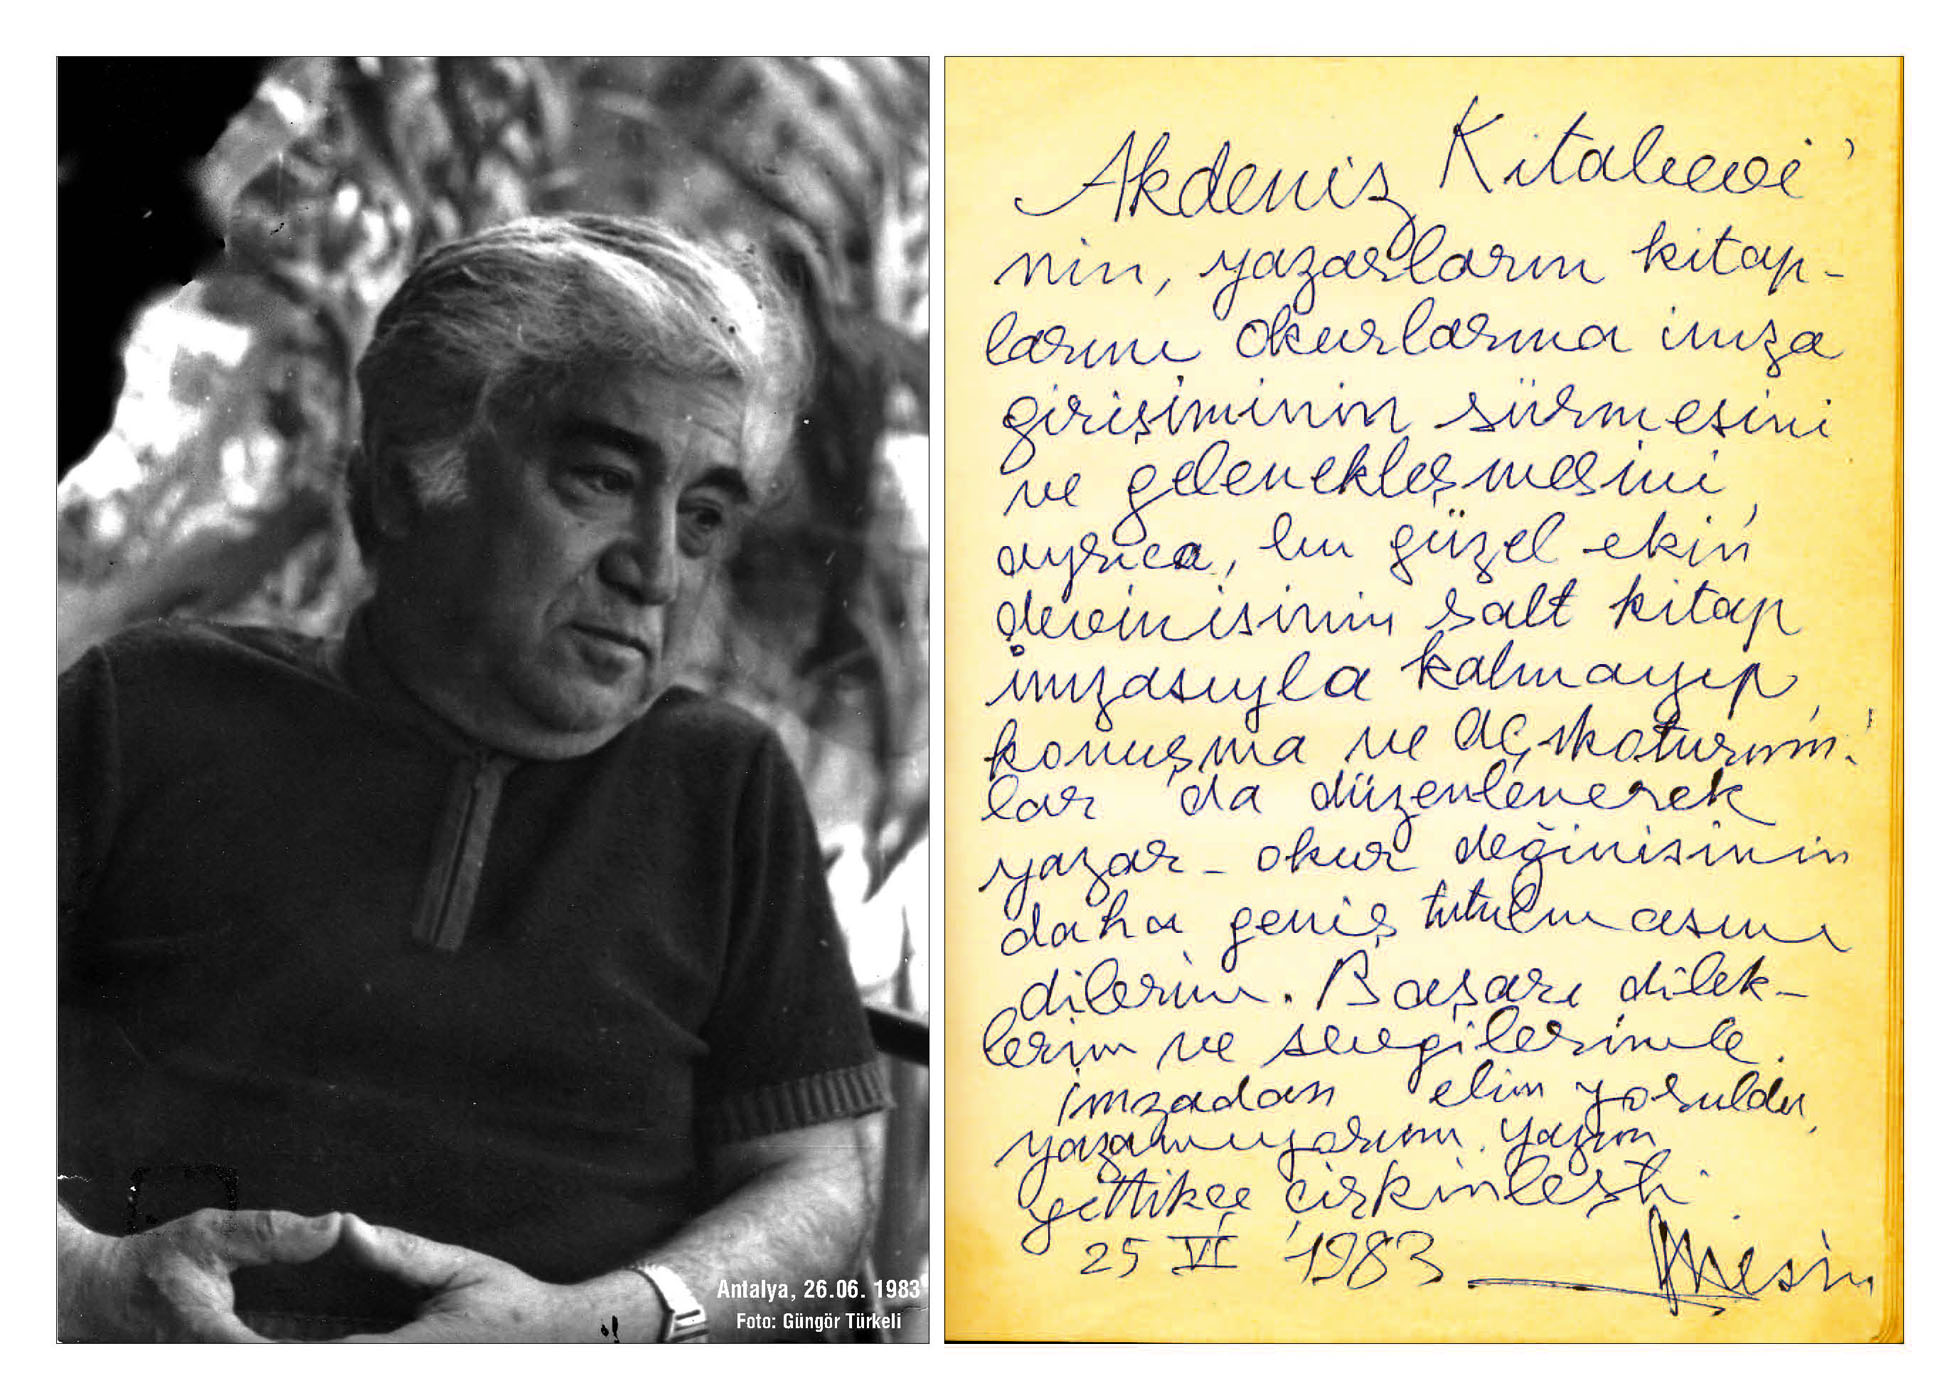 Antalya, 26.06. 1983
Foto: Güngör Türkeli
Akdeniz Kitabevi'
nin, yazarların kitap-
larını okurlarına imza
girişiminin sürmesini
ve gelenekleşmesini,
ayrıca, bu güzel ekin
devinisinin salt kitap
imzasıyla kalmayıp,
konuşma ve açıkoturum-
lar da düzenlenerek
yazar - okur değinisinin
daha geniş tutulmasını
dilerim. Başarı dilek-
lerim ve sevgilerimle.
imzadan elim yoruldu,
yazamıyorum. Yazım
gittikçe çirkinleşti.
25 VI 1983
Nesin